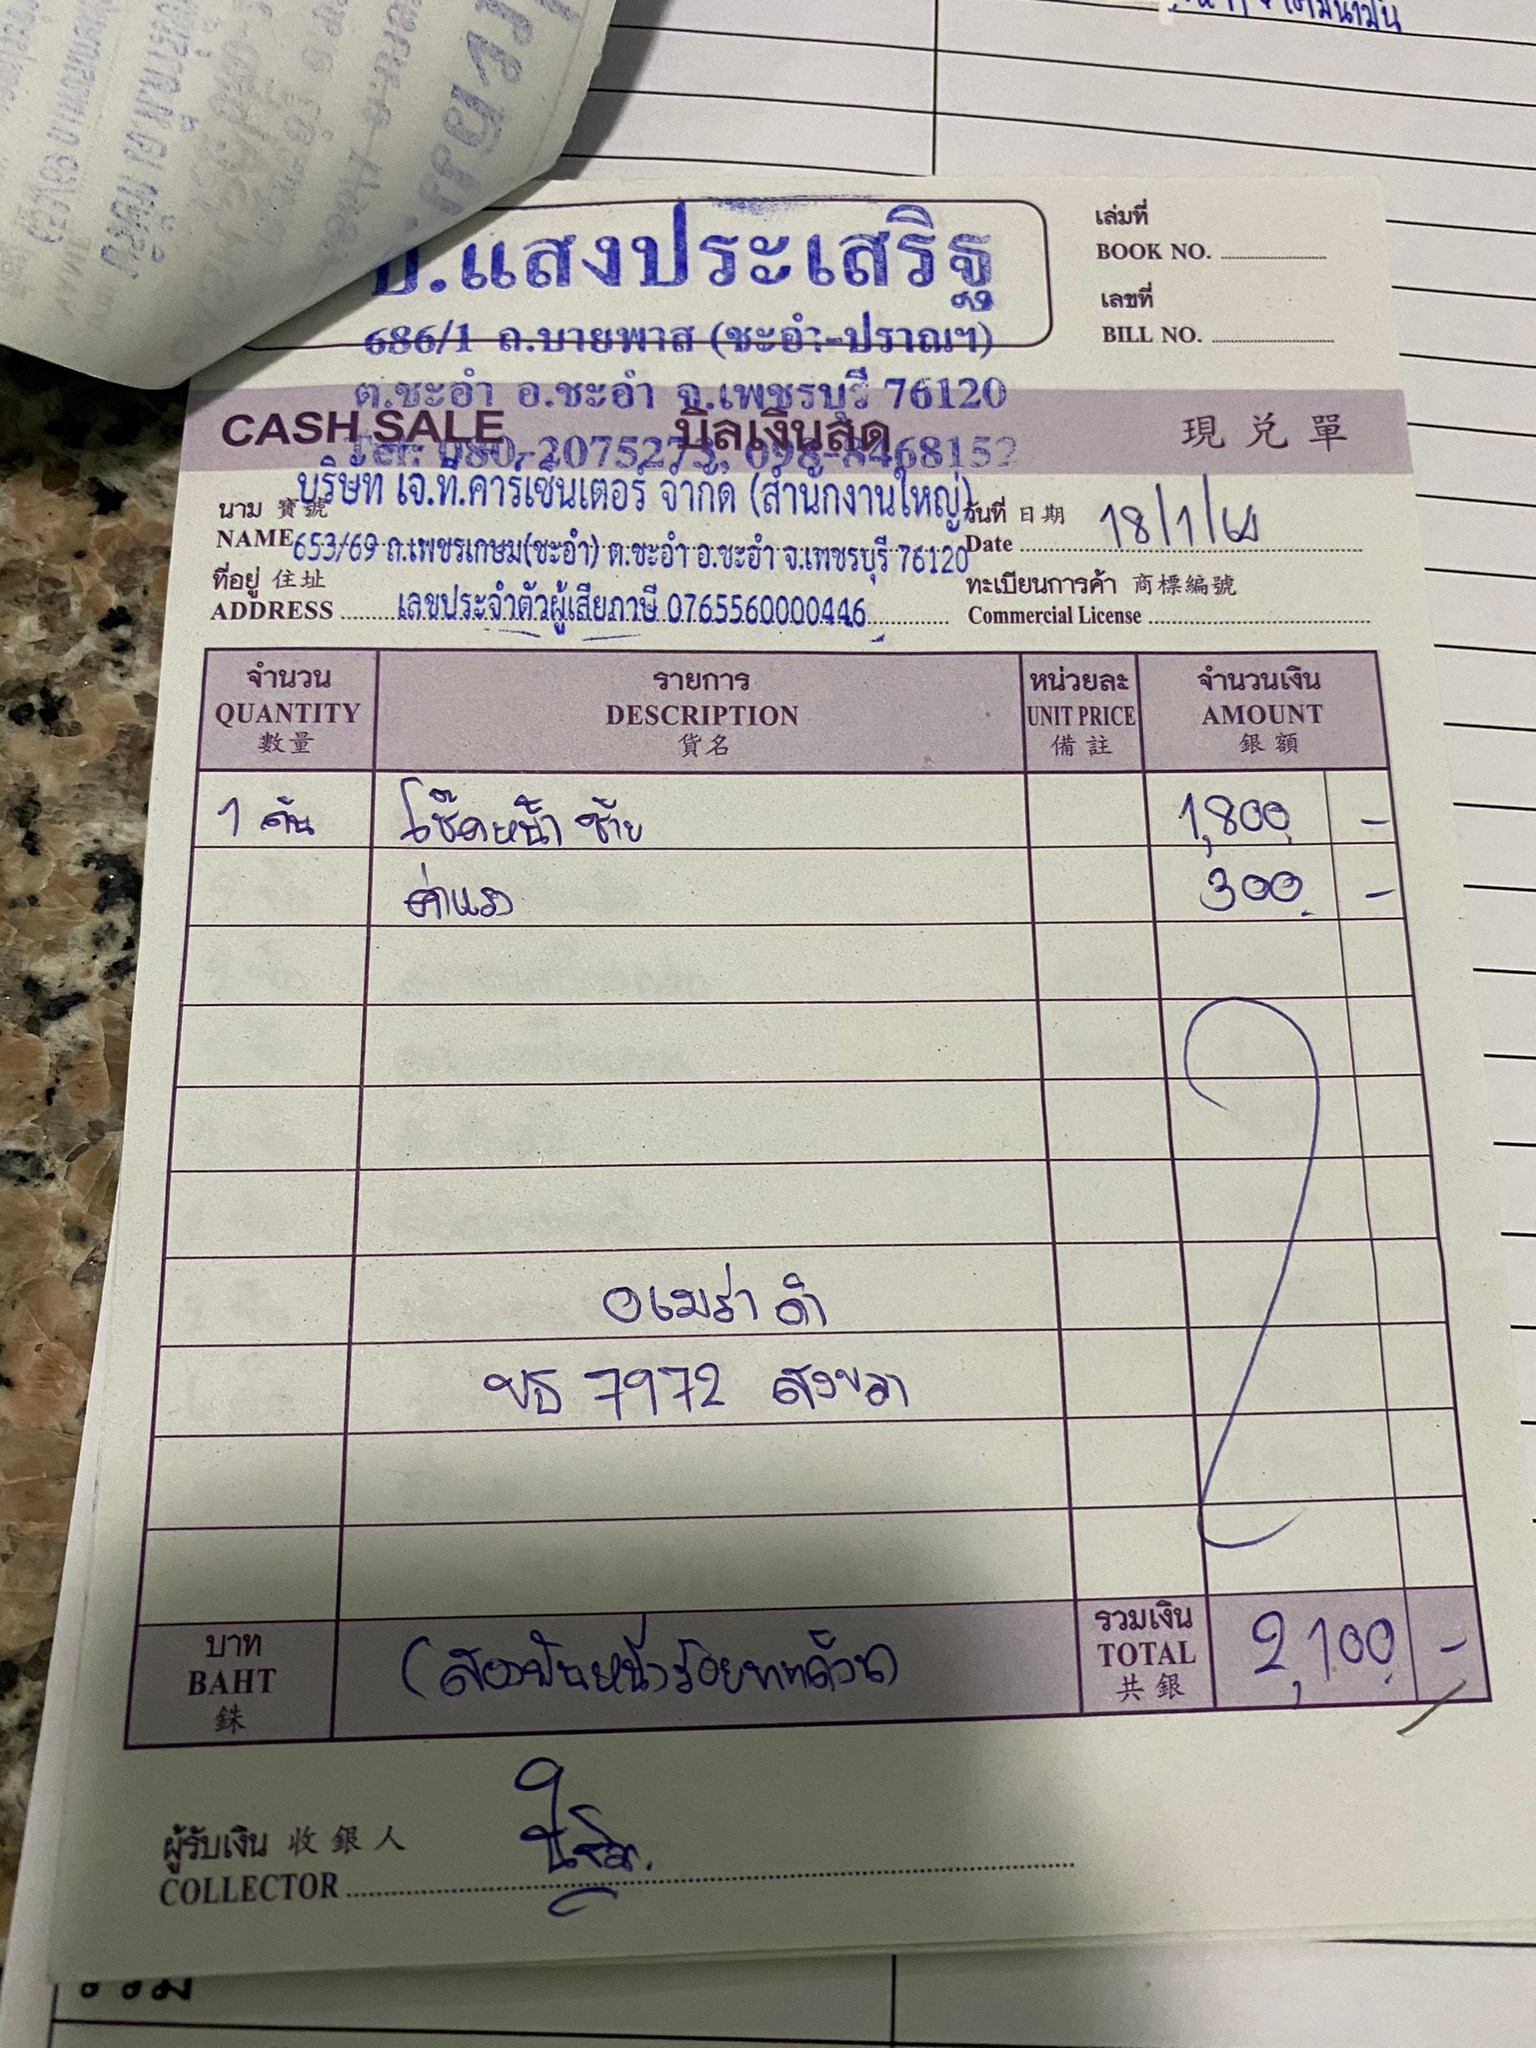 .แสงประเสริฐ
686/1 ถ.บายพาส (ชะอำ-ปราณฯ)
ต.ชะอำ อ.ชะอำ จ.เพชรบุรี 76120
Tel: 080-2075273, 098-8468152
เล่มที่
BOOK NO.
เลขที่
BILL NO.
CASH SALE บิลเงินสด 現兌單
บริษัท เจ.ที.คาร์เซ็นเตอร์ จำกัด (สำนักงานใหญ่)
นาม 寶號
NAME 653/69 ถ.เพชรเกษม(ชะอำ) ต.ชะอำ อ.ชะอำ จ.เพชรบุรี 76120
วันที่ 日期
Date 18/1/
ที่อยู่ 住址
ADDRESS เลขประจำตัวผู้เสียภาษี 0765560000446
ทะเบียนการค้า 商標編號
Commercial License
จำนวน รายการ หน่วยละ จำนวนเงิน
QUANTITY DESCRIPTION UNIT PRICE AMOUNT
數量 貨名 備註 銀額
1 ต้น โช๊คหน้า ซ้าย 1,800 -
ค่าแรง 300 -
ดำ
ขธ 7972 สงขลา
บาท
BAHT
銖
(สองพันหนึ่งร้อยบาทถ้วน)
รวมเงิน
TOTAL
共銀
2,100 -
ผู้รับเงิน 收銀人
COLLECTOR
รวม